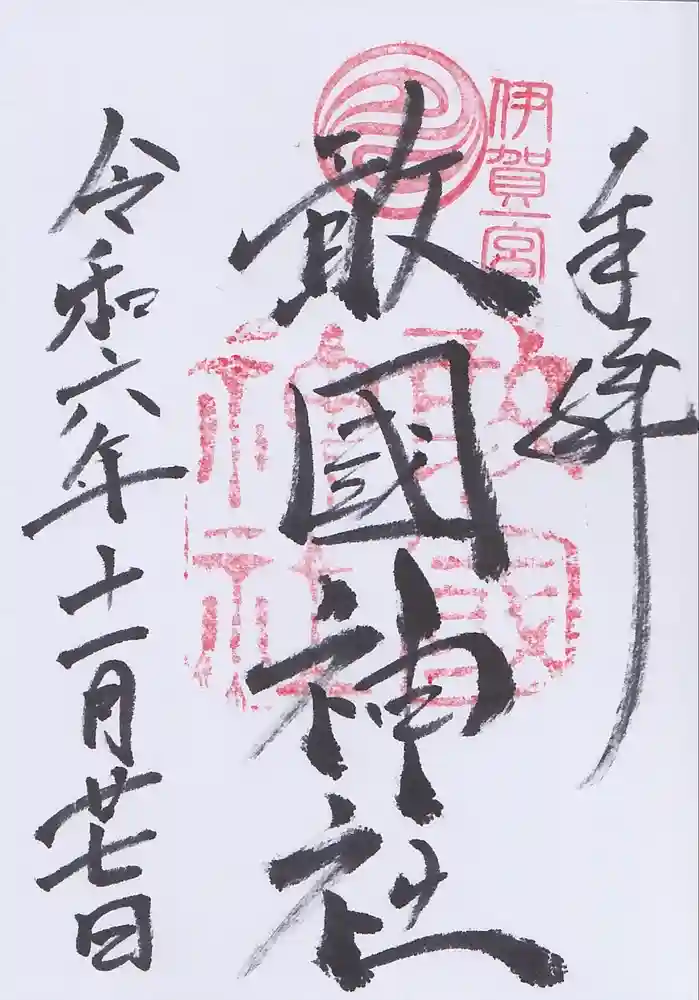 奉拝
伊賀一宮
敢國神社
敢国神社
令和六年十一月廿七日